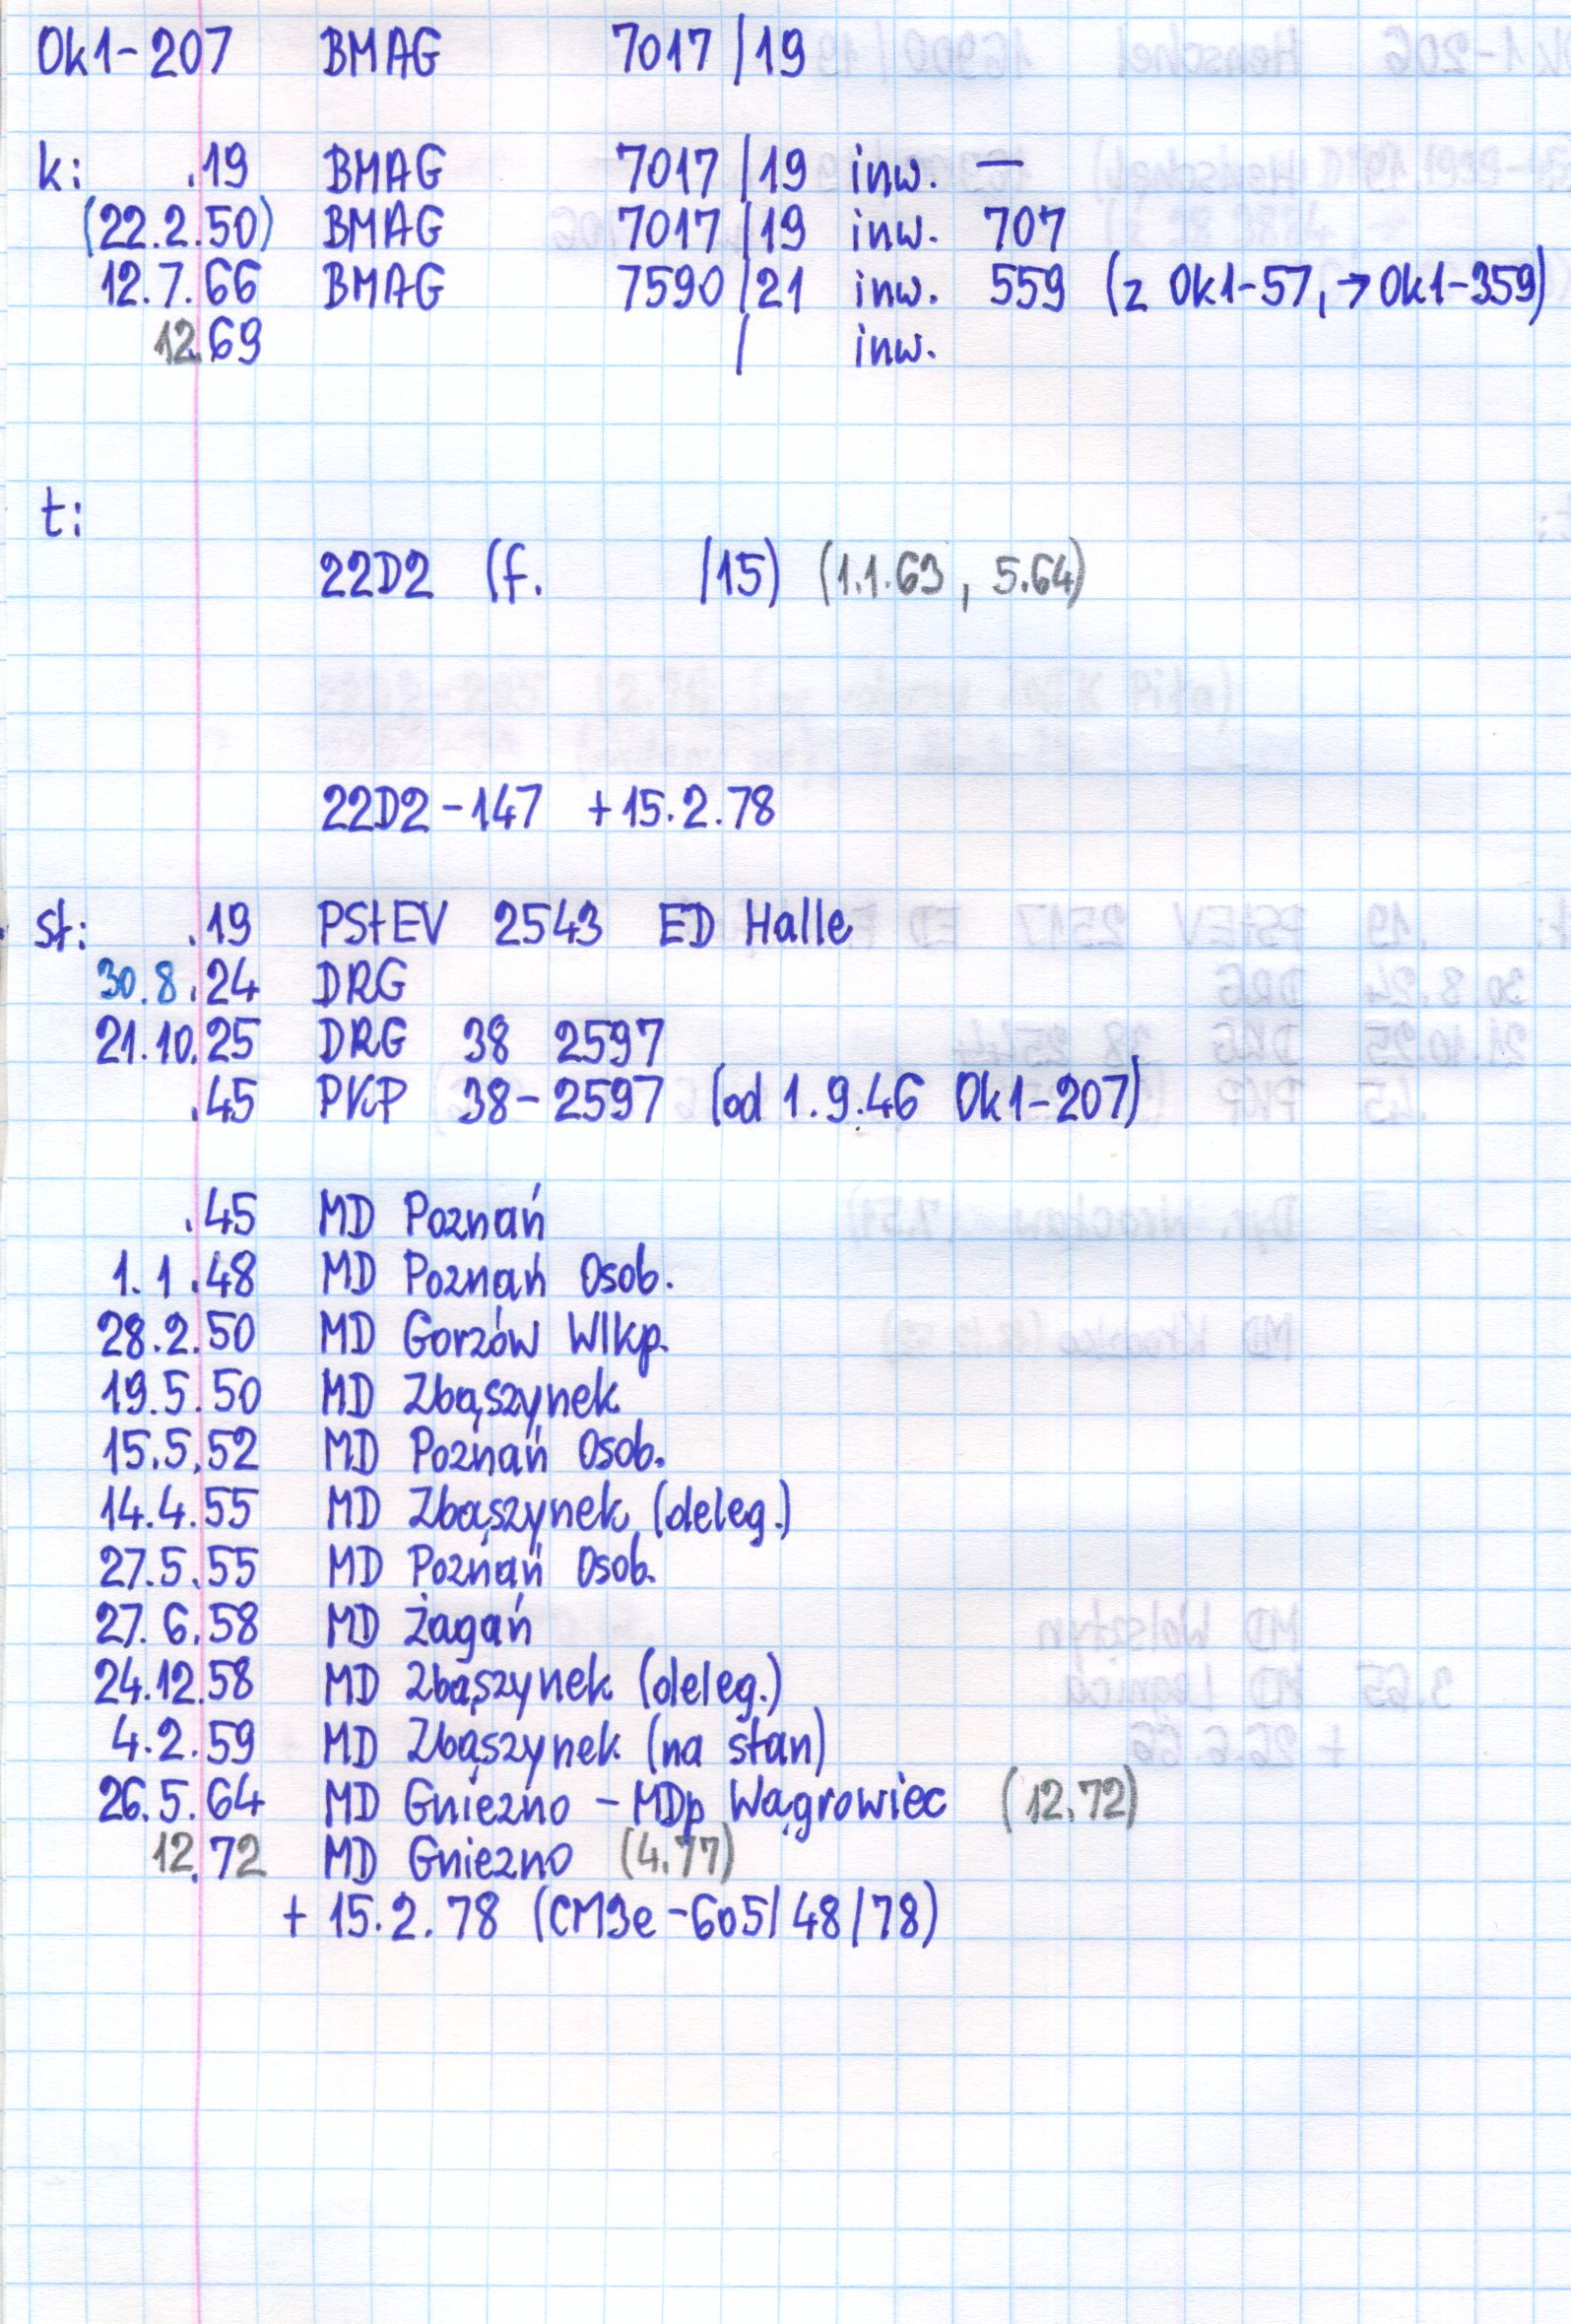 Ok1-207 BMAG 7017/19
k: .19 BMAG 7017/19 inw. —
(22.2.50) BMAG 7017/19 inw. 707
12.7.66 BMAG 7590/21 inw. 559 (z Ok1-57, → Ok1-359)
12.69 / inw.
t:
22D2 (f. /15) (1.1.63, 5.64)
22D2-147 +15.2.78
st: .19 PStEV 2543 ED Halle
30.8.24 DRG
21.10.25 DRG 38 2597
.45 PKP 38-2597 (od 1.9.46 Ok1-207)
.45 MD Poznań
1.1.48 MD Poznań Osob.
28.2.50 MD Gorzów Wlkp.
19.5.50 MD Zbąszynek
15.5.52 MD Poznań Osob.
14.4.55 MD Zbąszynek (deleg.)
27.5.55 MD Poznań Osob.
27.6.58 MD Żagań
24.12.58 MD Zbąszynek (deleg.)
4.2.59 MD Zbąszynek (na stan)
26.5.64 MD Gniezno - MDp Wągrowiec (12.72)
12.72 MD Gniezno (4.77)
+ 15.2.78 (CM3e-605/48/78)